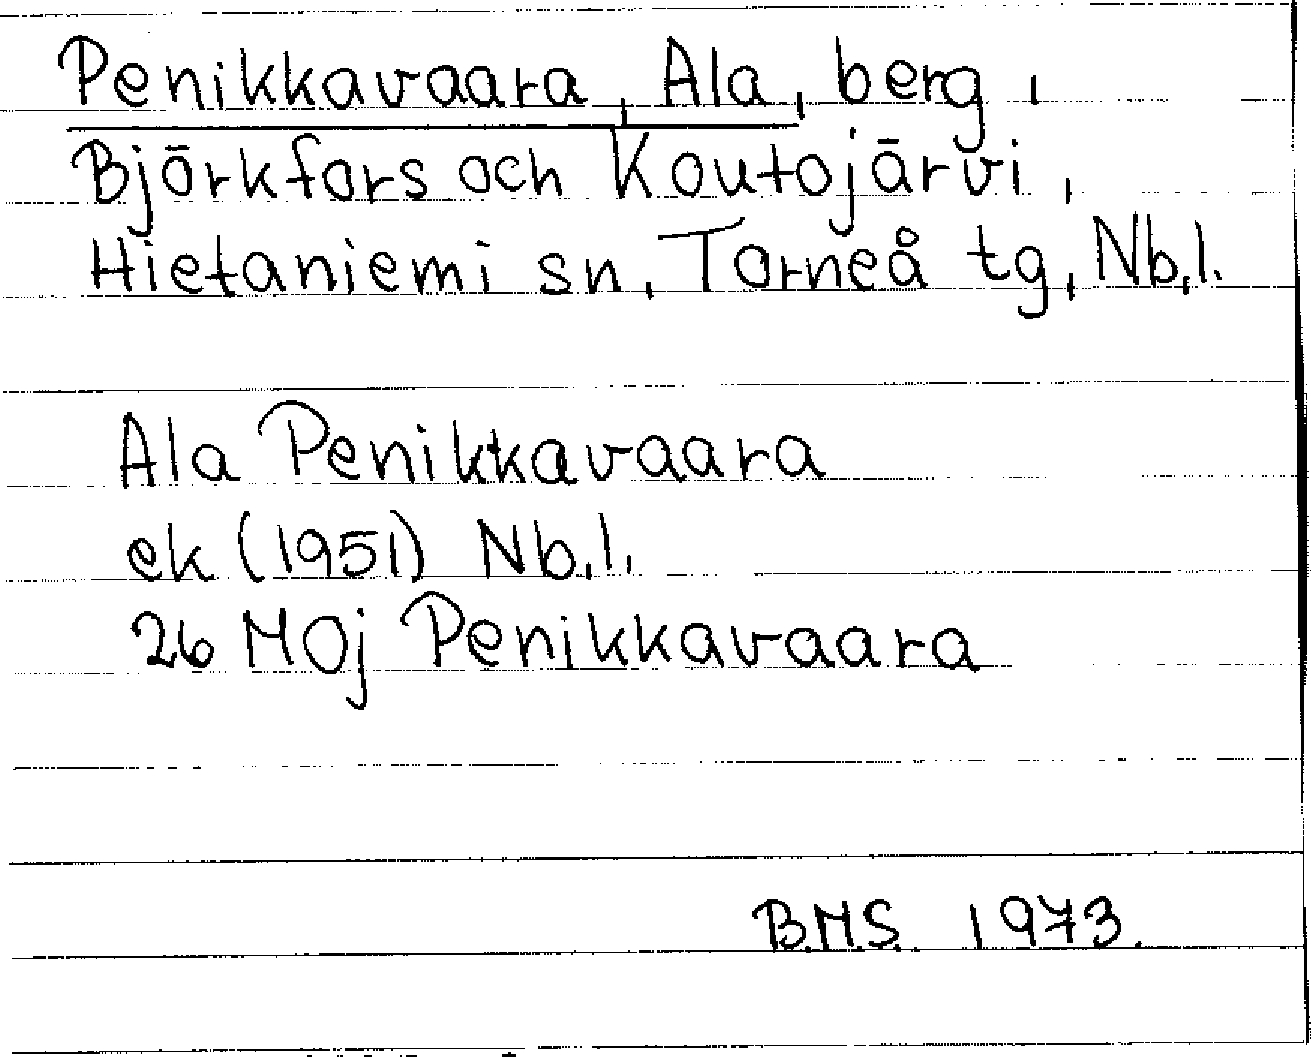 Penikkavaara, Ala, berg,
Björkfors och Koutojärvi,
Hietaniemi sn, Torneå tg, Nb.l.
Ala Penikkavaara
ek (1951) Nb.l.
26 MOj Penikkavaara
B.M.S. 1973.